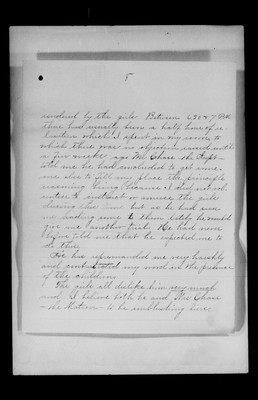 5
rendered by the girls. Between 6.30 & 7 PM
there had usually been a half hour of re-
which I spent in my room to
which there was no objection raised until
a few weeks ago Mr Chase the Supt-
told me he had concluded to get some
one else to fill my place the principle
reasoning being because I did not
instruct or amuse the girls
during that hour but as he had seen
me reading some to them lately he would
give me another trial. He had never
before told me that he expected me to
do this.
He has reprimanded me very harshly
and contradicted my word in the presence
of the children.
The girls all dislike him very much
and I believe both he and Mrs Chase
- the Matron - to be unblushing liars